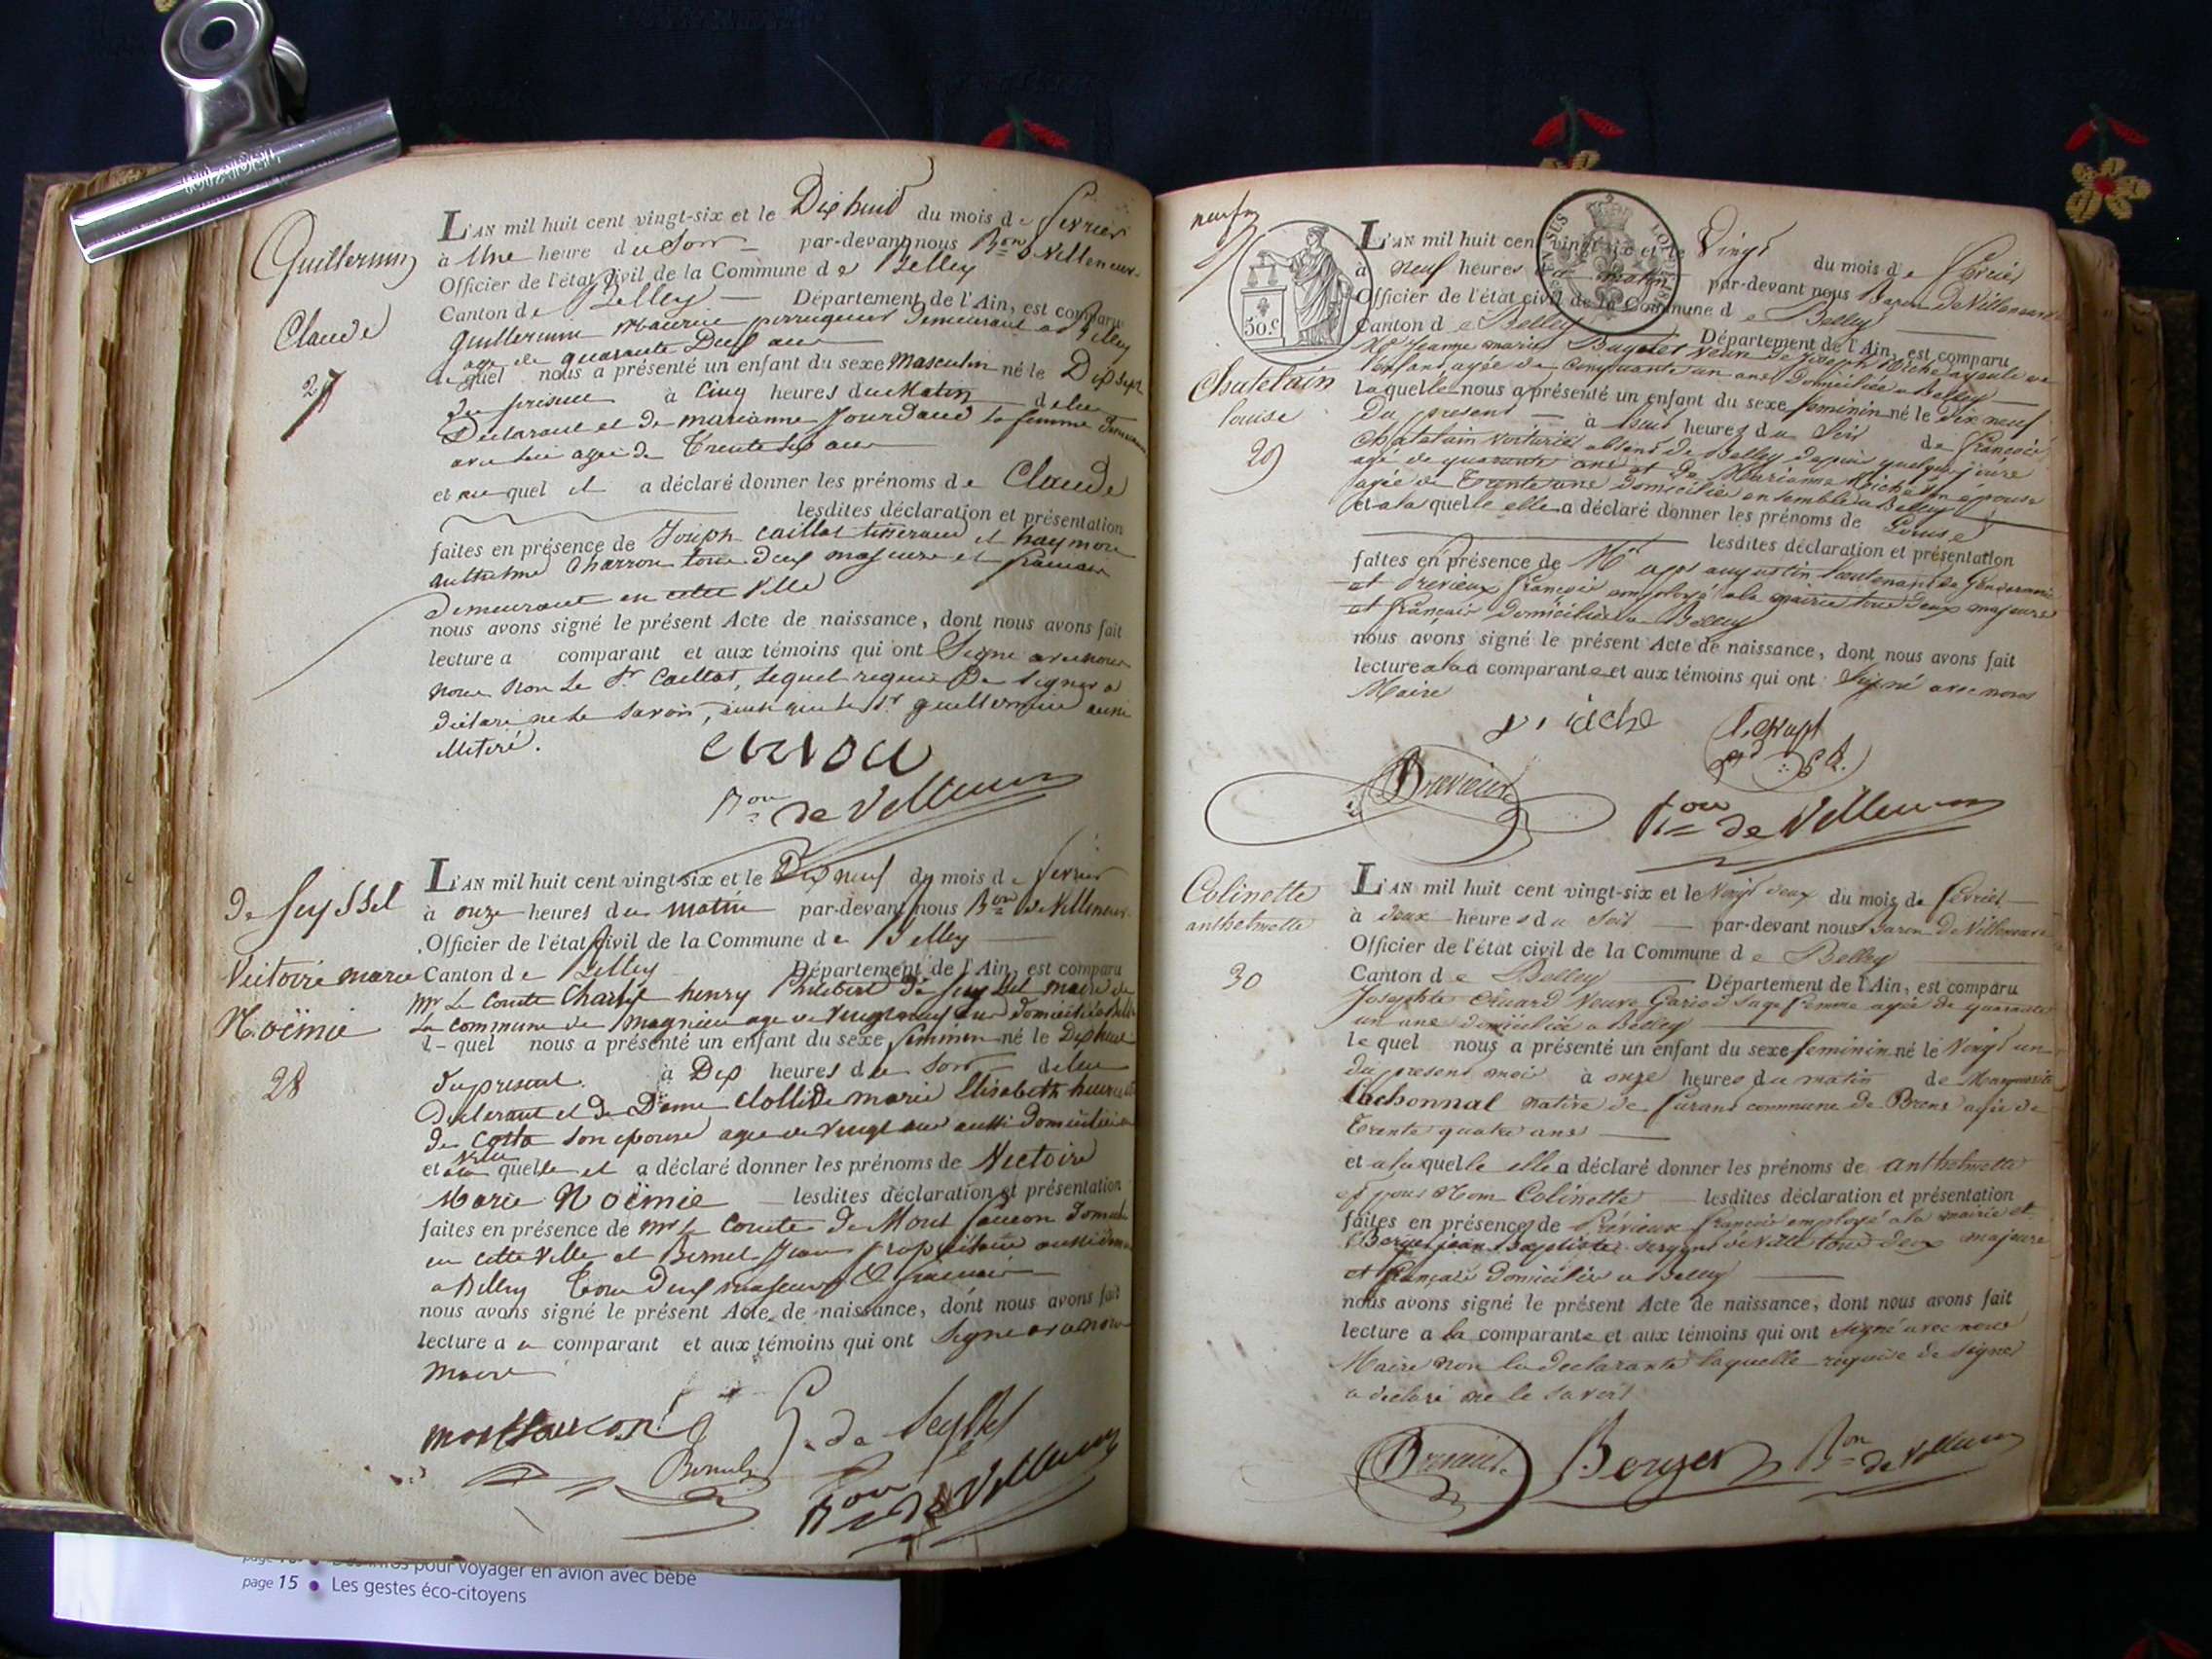 Guillermin
Claude
27
L'AN mil huit cent vingt-six et le Dix huit du mois de fevrier
à Une heure du Soir par-devant nous Bon de Villeneuve
Officier de l'état civil de la Commune de Belley
Canton de Belley Département de l'Ain, est comparu
Guillermin Maurice perruquier demeurant a Belley
age de quarante Deux ans
lequel nous a présenté un enfant du sexe masculin né le Dix sept
du present à Cinq heures du Matin de lui
Declarant et de marianne Jourdand sa femme demeurant
avec lui agée de Trente six ans
et auquel il a déclaré donner les prénoms de Claude
lesdites déclaration et présentation
faites en présence de Joseph Caillat tisserand et haymon
anthelme Charron tous deux majeurs et francais
Demeurant en cette Ville
nous avons signé le présent Acte de naissance, dont nous avons fait
lecture a comparant et aux témoins qui ont Signé avec nous
nous non le Sr Caillat, lequel requis De signer a
déclaré ne le Savoir, ainsi que le Sr guillermin aussi
illeteré.
Bon de Villeneuve
de Seyssel
Victoire marie
Noëmie
28
L'AN mil huit cent vingt-six et le Dix neuf du mois de fevrier
à onze heures du matin par-devant nous Bon de Villeneuve
Officier de l'état civil de la Commune de Belley
Canton de Belley Département de l'Ain, est comparu
Mr Le Comte Charles henry Philibert de Seyssel maire de
la commune de Magnieu age de vingt neuf ans domicilié a Belley
lequel nous a présenté un enfant du sexe feminin né le Dix huit
du present à Dix heures du Soir de lui
Declarant et de Dame Clotilde marie Elisabeth
de Costa son epouse agee de vingt ans aussi domiciliée en
ville
et a la quelle il a déclaré donner les prénoms de Victoire
Marie Noëmie lesdites déclaration et présentation
faites en présence de Mr le Comte de Mont faucon domicilié
en cette Ville et Bernel Jean propriétaire aussi
a Belley Tous Deux majeurs & francais
nous avons signé le présent Acte de naissance, dont nous avons fait
lecture au comparant et aux témoins qui ont Signé avec nous
Maire
montfaucon
de Seyssel
Bon de Villeneuve
neuf
50.c
Chatelain
louise
29
L'AN mil huit cent vingt-six et le Vingt du mois de fevrier
à neuf heures du matin par-devant nous Baron de Villeneuve
Officier de l'état civil de la Commune de Belley
Canton de Belley Département de l'Ain, est comparu
Jeanne marie Veuve de Joseph Miche ayeule de
l'enfant, agée de Cinquante un ans domiciliée a Belley
laquelle nous a présenté un enfant du sexe feminin né le Dix neuf
Du present à huit heures du Soir de François
Chatelain voiturier absent de Belley depuis quelques jours
agé de quarante ans et de Marianne Miche son épouse
agée de Trente ans domiciliés ensemble a Belley
et a la quelle elle a déclaré donner les prénoms de Louise
lesdites déclaration et présentation
faites en présence de Mr augustin lieutenant de Gendarmerie
et Drevieux françois employé a la mairie tous deux majeurs
et français domiciliés a Belley
nous avons signé le présent Acte de naissance, dont nous avons fait
lecture a la comparante et aux témoins qui ont Signé avec nous
Maire
Drevieux
Bon de Villeneuve
Colinette
anthelmette
30
L'AN mil huit cent vingt-six et le Vingt deux du mois de fevrier
à deux heures du Soir par-devant nous Baron De Villeneuve
Officier de l'état civil de la Commune de Belley
Canton de Belley Département de l'Ain, est comparu
Josephte Veuve Sage femme agée de quarante
un ans domiciliée a Belley
lequel nous a présenté un enfant du sexe feminin né le Vingt un
du present mois à onze heures du matin de Marguerite
Cochonnal native de commune de Brens agée de
Trente quatre ans
et a la quelle elle a déclaré donner les prénoms de anthelmette
et pour Nom Colinette lesdites déclaration et présentation
faites en présence de Drévieux françois employé a la mairie et
Berger jean Baptiste sergent de Ville tous deux majeurs
et français domiciliés a Belley
nous avons signé le présent Acte de naissance, dont nous avons fait
lecture a la comparante et aux témoins qui ont signé avec nous
Maire non la declarante laquelle requise de signer
a declaré ne le savoir
Drevieux Berger Bon de Villeneuve
pour voyager en avion avec bébé
page 15 • Les gestes éco-citoyens